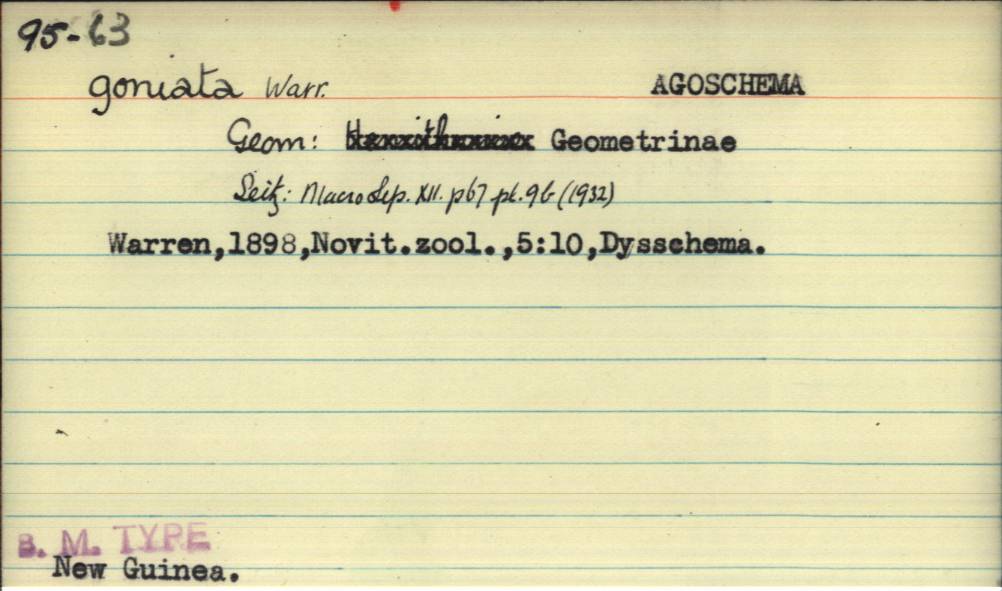 95-63
goniata Warr. AGOSCHEMA
Geom: Geometrinae
Seitz: Macrolep. XII. p67 pl.9b (1932)
Warren,1898,Novit.zool.,5:10,Dysschema.
B. M. TYPE
New Guinea.